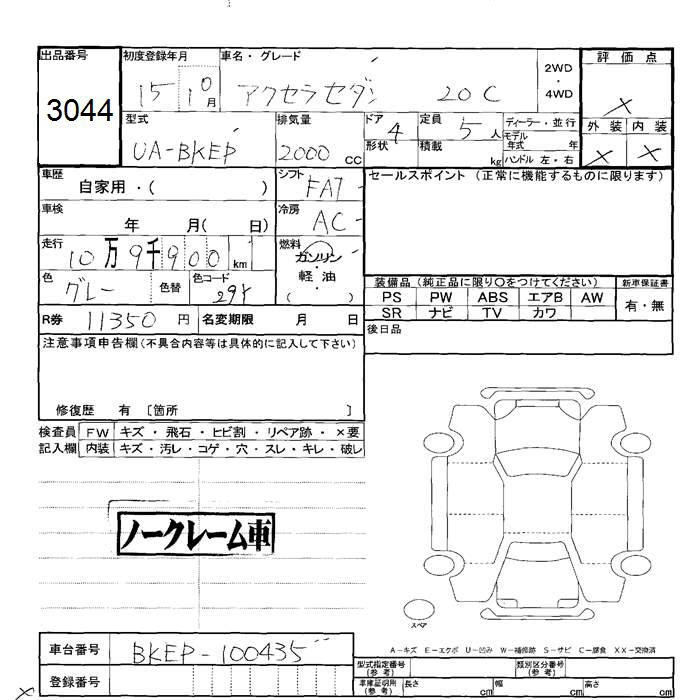 出品番号 初度登録年月 車名・グレード 2WD 評価点
3044 15 10月 アクセラセダン 20C ・ 4WD ×
型式 排気量 ドア 4 定員 5人 ディーラー・並行 外装 内装
UA-BKEP 2000cc 形状 積載 kg モデル年式 年 × ×
ハンドル 左・右
車歴 自家用・( ) シフト FAT セールスポイント (正常に機能するものに限ります)
車検 年 月( 日) 冷房 AC
走行 10万9千900km 燃料 ガソリン・軽・油 ( )
色 グレー 色替 色コード 29Y
装備品 (純正品に限り○をつけてください) 新車保証書
PS PW ABS エアB AW 有・無
SR ナビ TV カワ
R券 11350円 名変期限 月 日 後日品
注意事項申告欄(不具合内容等は具体的に記入して下さい)
修復歴 有 [箇所 ]
検査員 FW キズ・飛石・ヒビ割・リペア跡・×要
記入欄 内装 キズ・汚レ・コゲ・穴・スレ・キレ・破レ
ノークレーム車
スペア
A-キズ E-エクボ U-凹み W-補修跡 S-サビ C-腐食 XX-交換済
車台番号 BKEP-100435
型式指定番号(参考) 類別区分番号(参考)
登録番号
車庫証明用(参考) 長さ cm 幅 cm 高さ cm
×